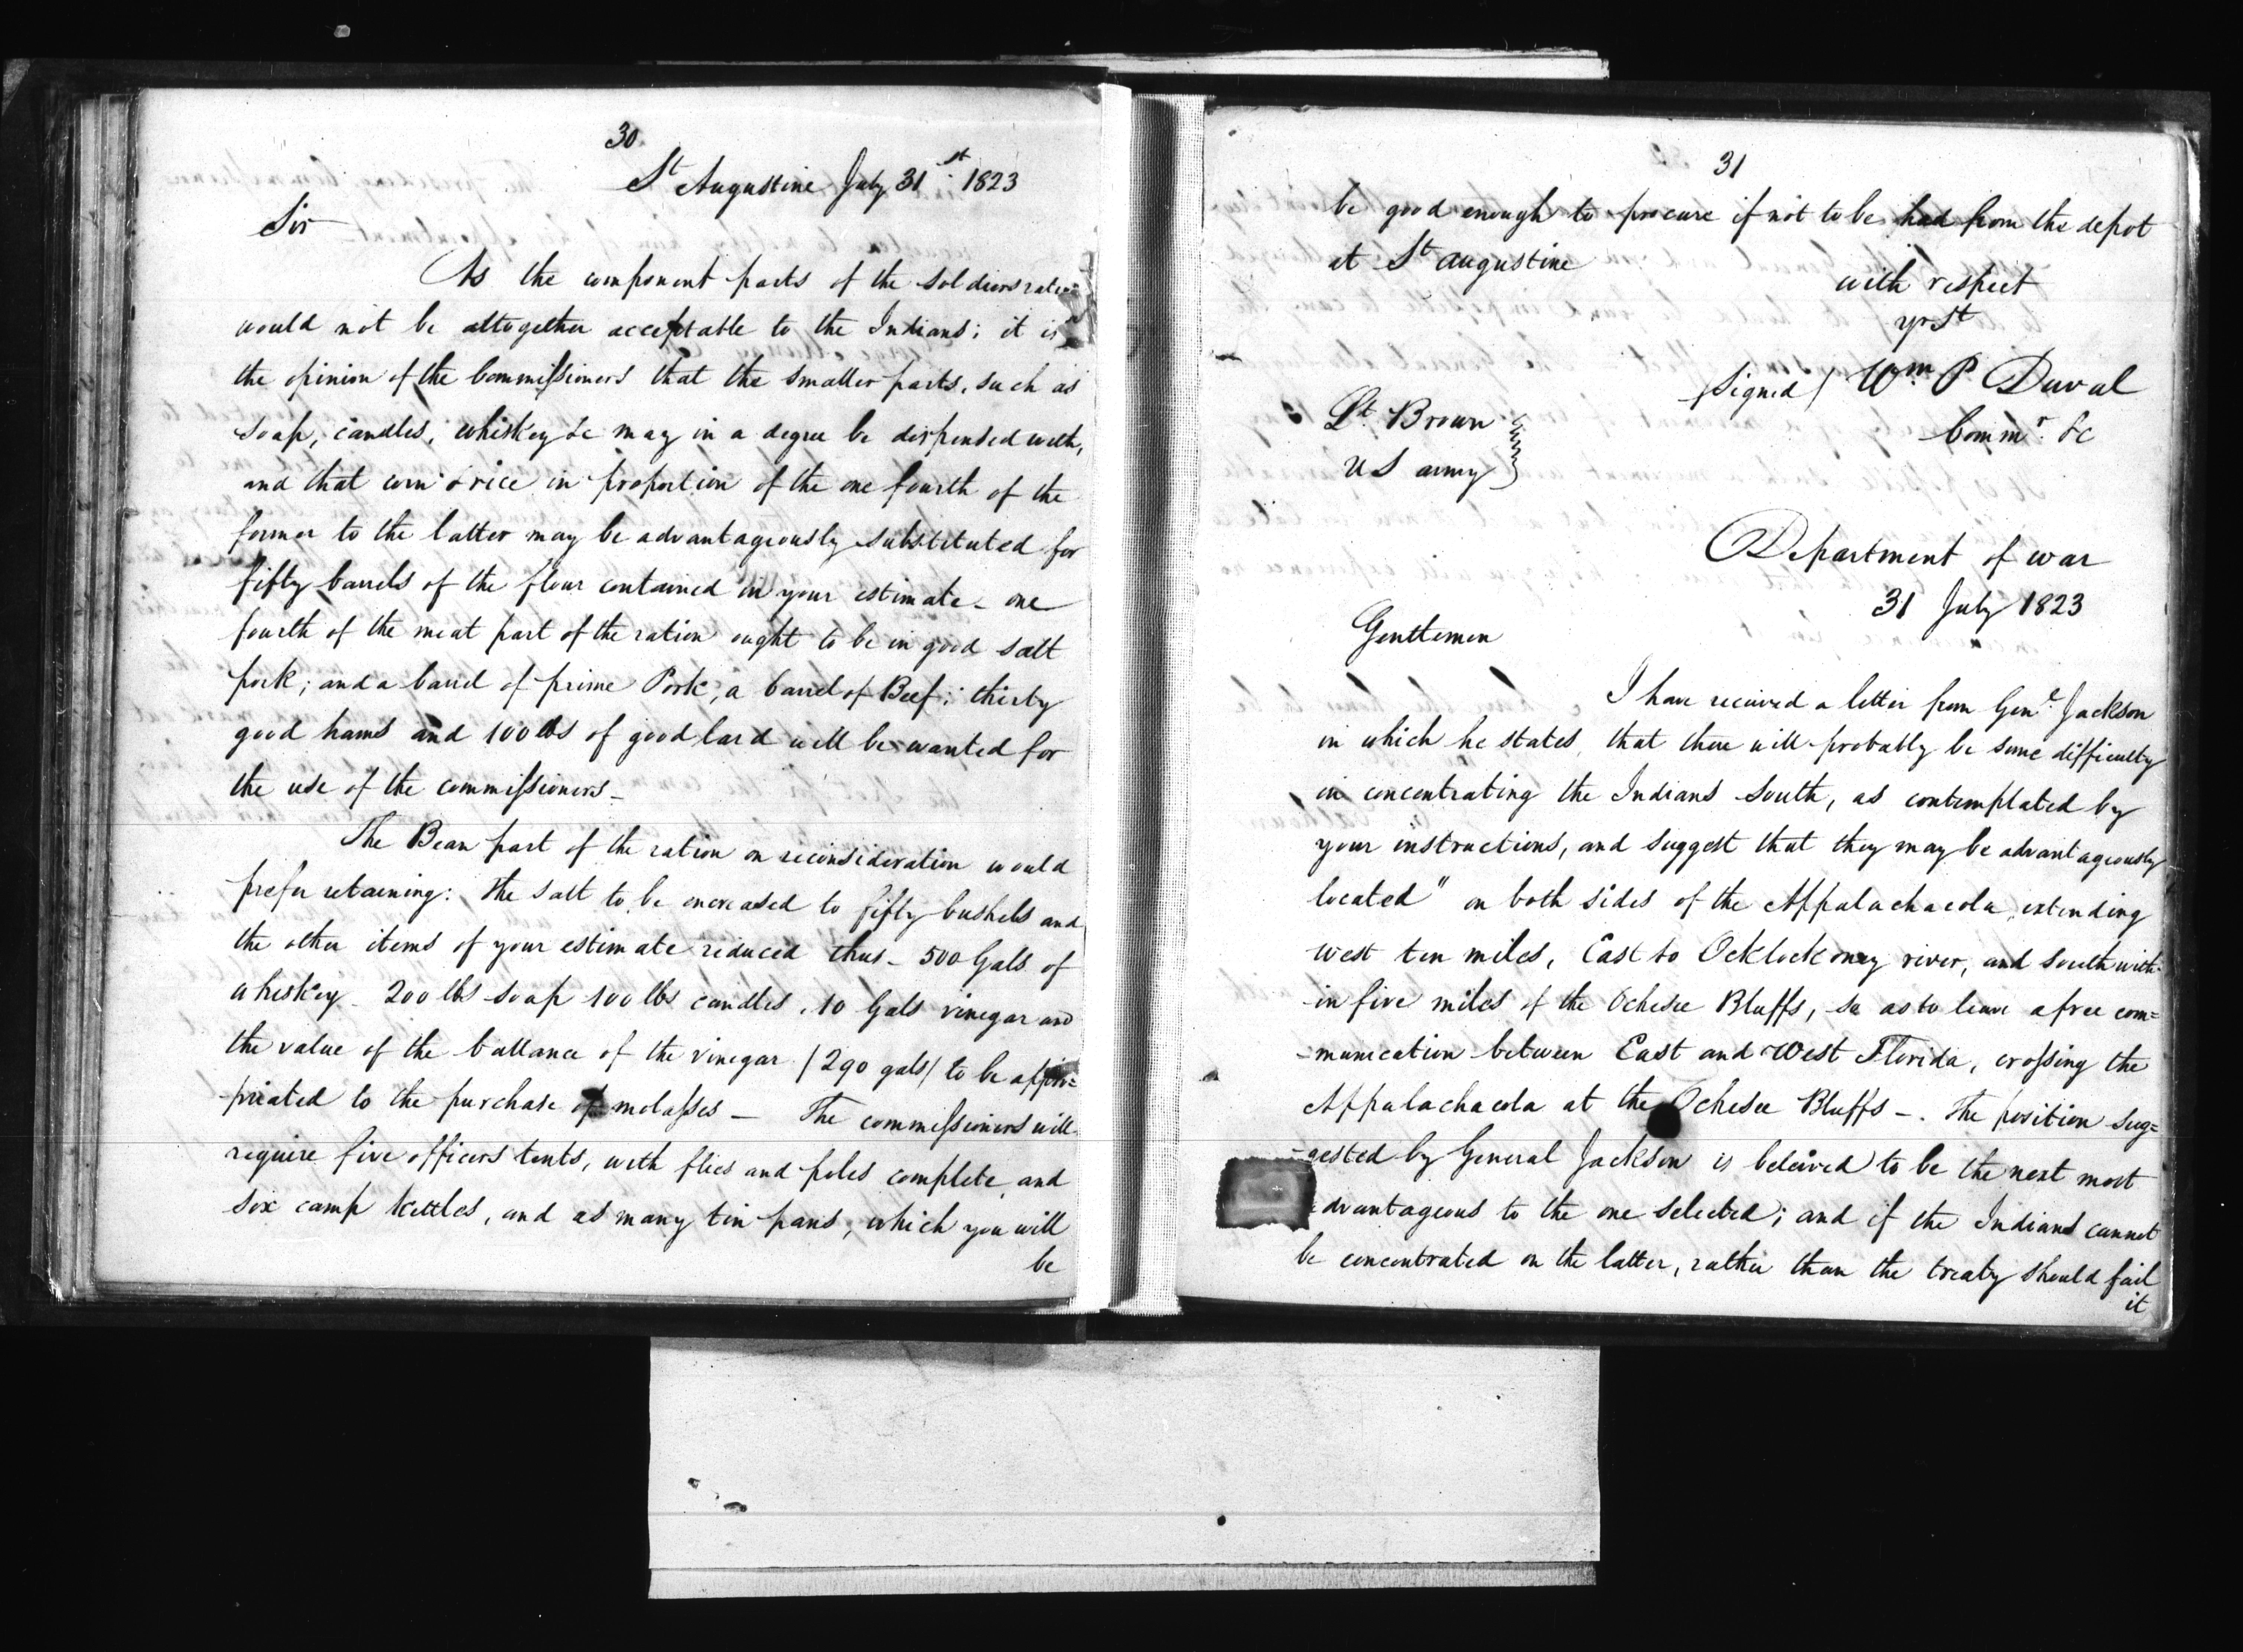 30
St Augustine July 31st 1823
Sir
As the component parts of the soldiers ration
would not be altogether acceptable to the Indians; it is
the opinion of the Commissioners that the smaller parts, such as
soap, candles, whiskey &c may in a degree be dispensed with,
and that corn & rice in proportion of the one fourth of the
former to the latter may be advantageously substituted for
fifty barrels of the flour contained in your estimate - one
fourth of the meat part of the ration ought to be in good salt
pork; and a barrel of prime Pork, a barrel of Beef; thirty
good hams and 100 lbs of good lard will be wanted for
the use of the commissioners -
The Bean part of the ration on reconsideration would
prefer retaining: The salt to be encreased to fifty bushels and
the other items of your estimate reduced thus - 500 Gals of
whiskey - 200 lbs soap 100 lbs candles, 10 Gals vinegar and
the value of the ballance of the vinegar (290 gals) to be appro=
-priated to the purchase of molasses - The commissioners will
require five officers tents, with flies and poles complete, and
six camp kettles, and as many tin pans, which you will
be
31
be good enough to procure if not to be had from the depot
at St augustine
with respect
yr St
(signed) Wm. P. Duval
Commr. &c
Lt. Brown
US army
Department of war
31 July 1823
Gentlemen
I have received a letter from Genl. Jackson
in which he states, that there will probably be some difficulty
in concentrating the Indians South, as contemplated by
your instructions, and suggest that they may be advantageously
located " on both sides of the Appalachacola, extending
west ten miles, East to Ocklockoney river, and South with-
-in five miles of the Ochesee Bluffs, so as to leave a free com=
-munication between East and West Florida, crossing the
Appalachacola at the Ochesee Bluffs -. The position sug=
-gested by General Jackson is beleived to be the next most
advantageous to the one selected; and if the Indians cannot
be concentrated on the latter, rather than the treaty should fail
it